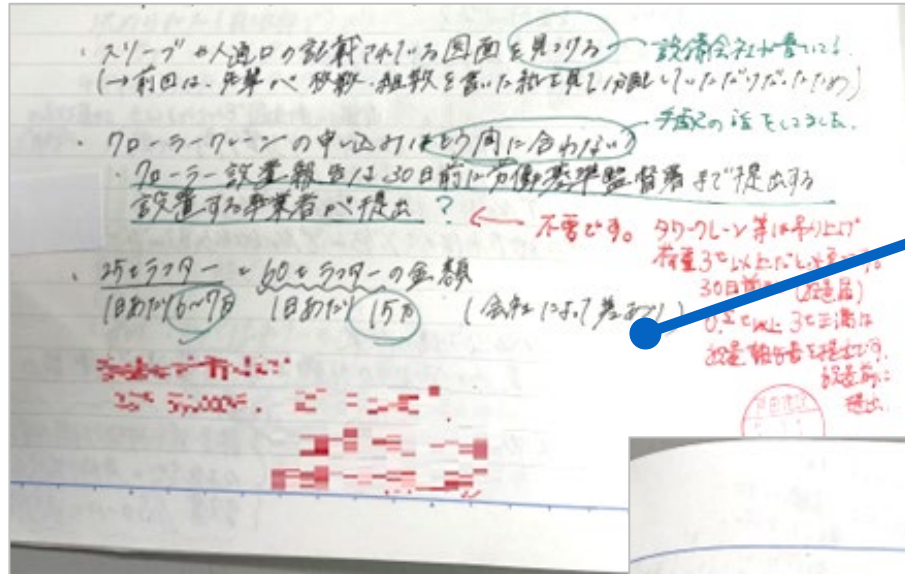 ・スリーブや人通口の記載されている図面を見つける
設備会社が書いている。
(→前回は、先輩が 枚数・組数を書いた紙を見て分配していただけだったため)
手配の話をしてました。
・クローラークレーンの申し込みはもう間に合わない?
・クローラー設置報告は、30日前に労働基準監督署まで提出する
設置する事業者が提出 ?
← 不要です。
タワークレーン等は吊り上げ
荷重3t以上だと
30日前
0.5t以上 3t未満は
設置報告書を提出です。
設置前に
提出。
・25tラフターと60tラフターの金額
1日あたり6~7万 1日あたり15万 (会社によって差あり)